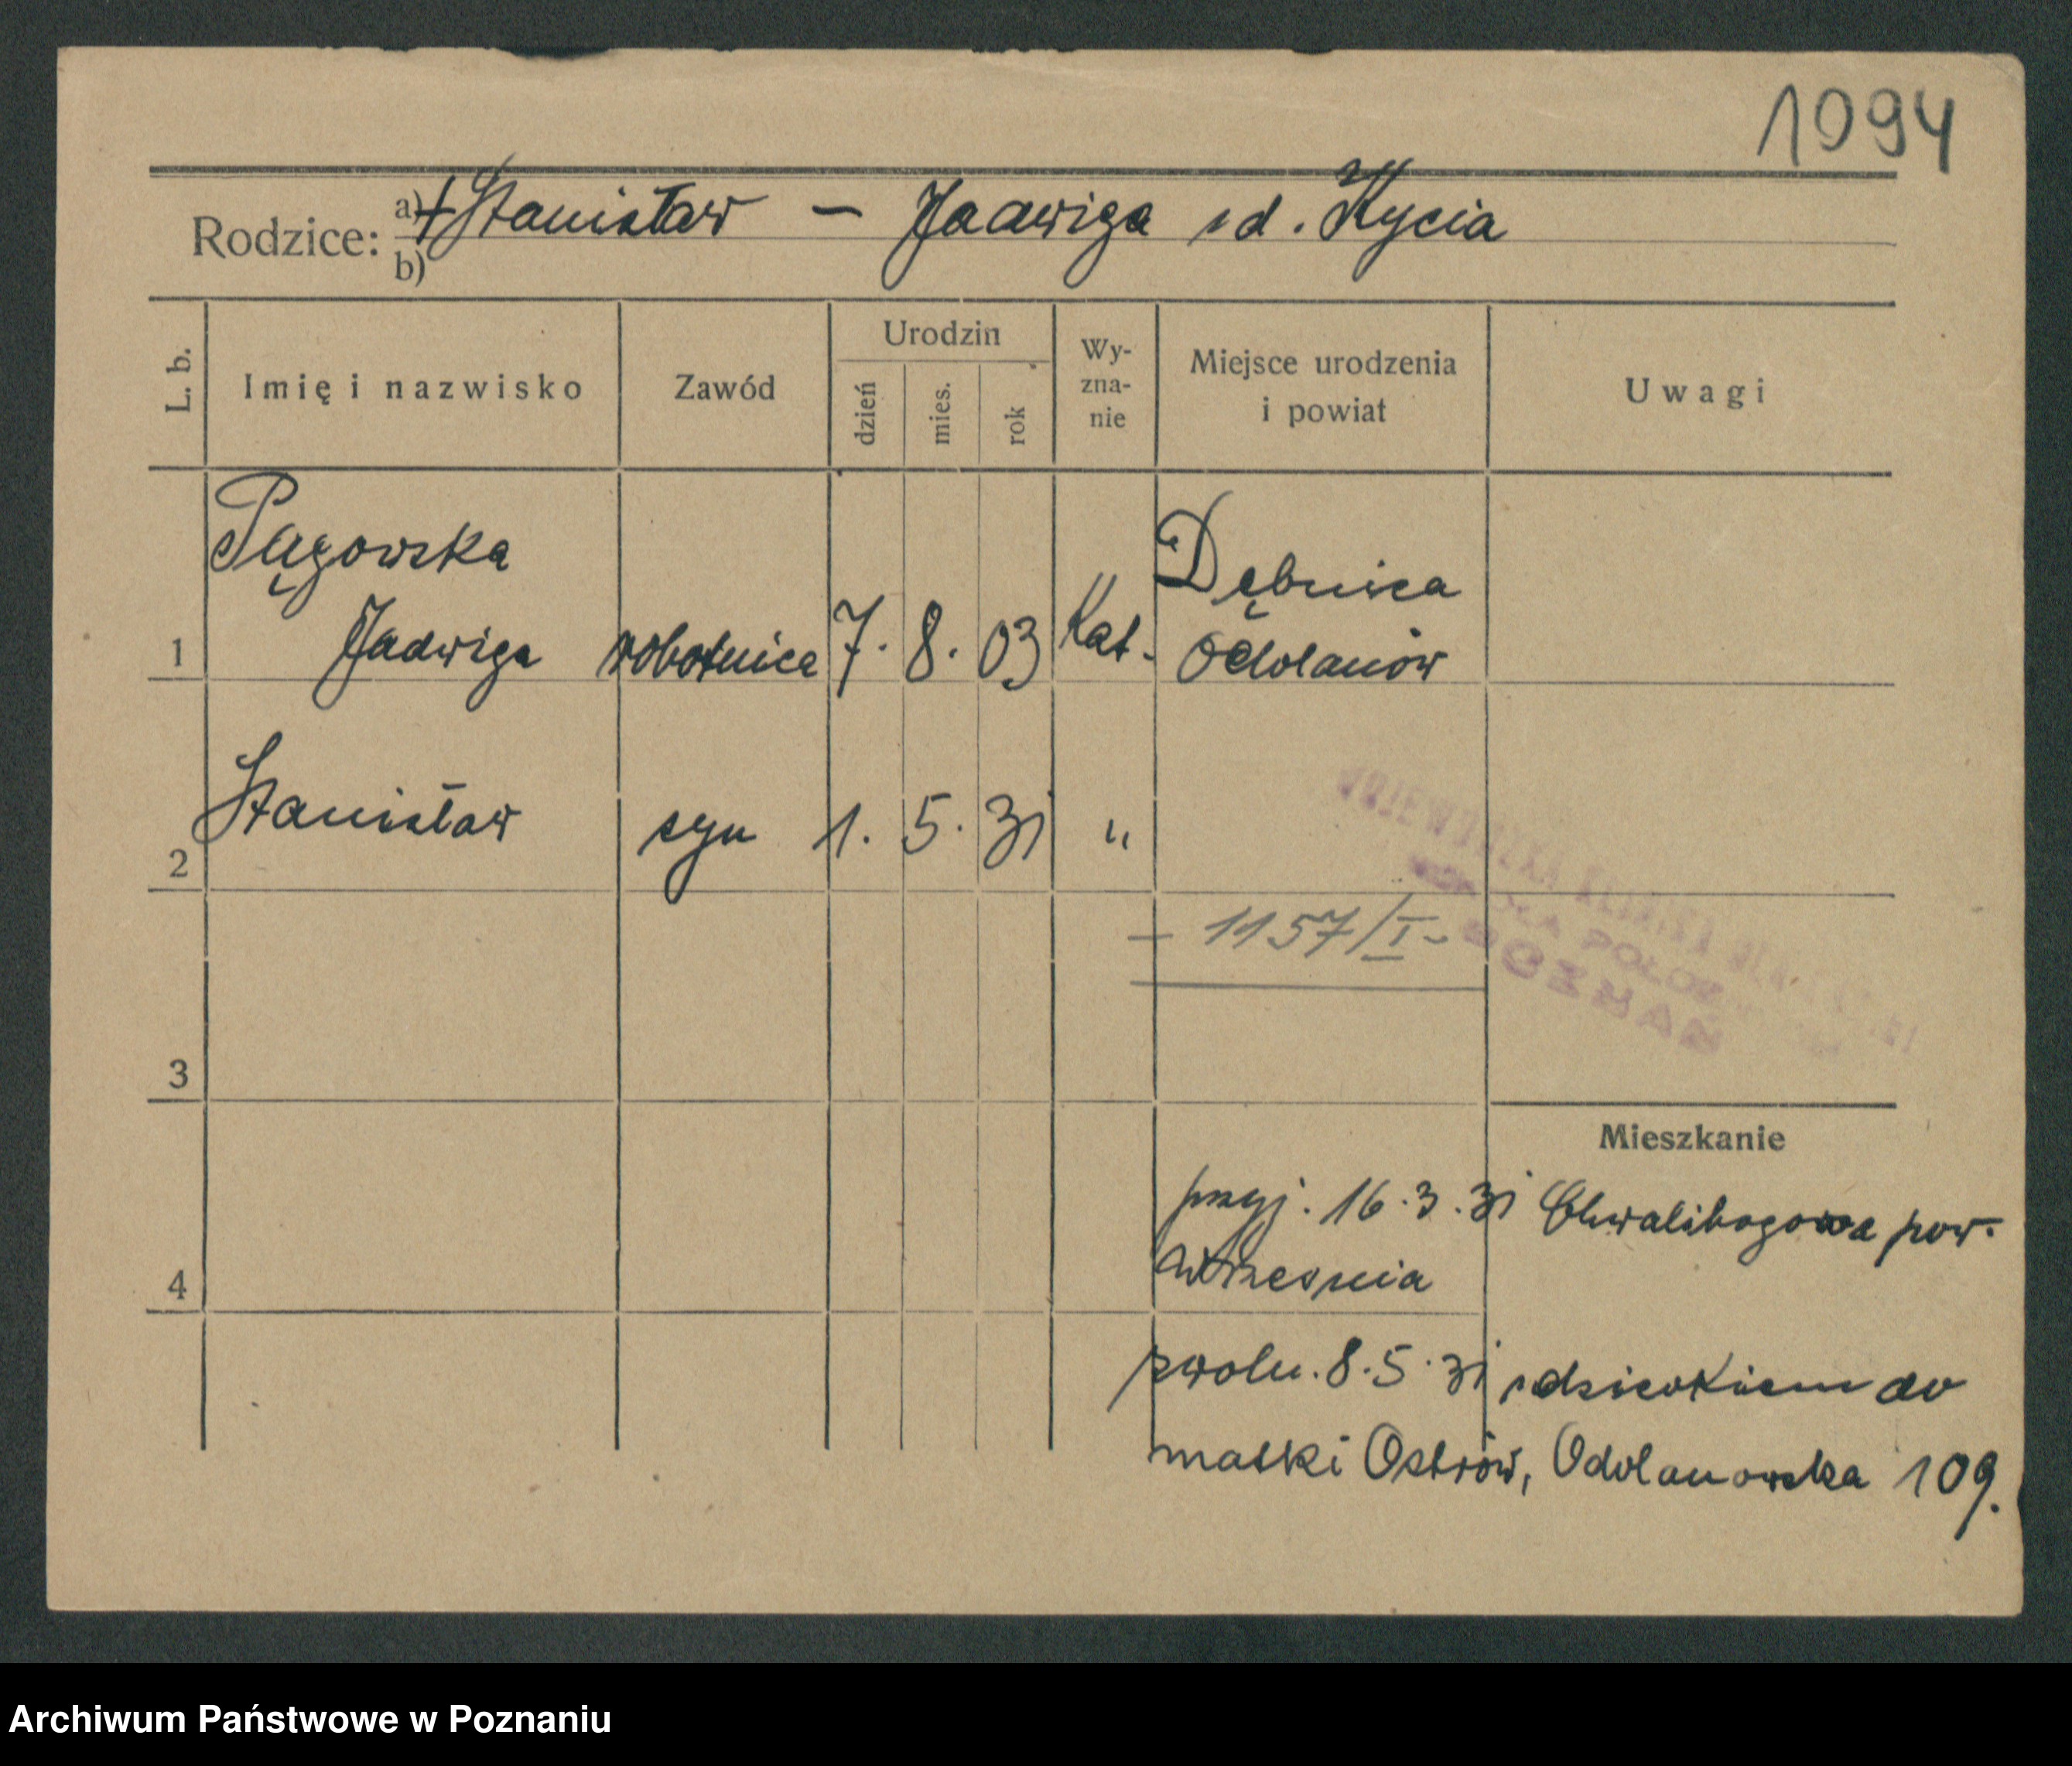 1094
Rodzice: a) + Stanisław – Jadwiga zd. Kycia
b)
L. b.
Imię i nazwisko
Zawód
Urodzin
dzień
mies.
rok
Wy-
zna-
nie
Miejsce urodzenia
i powiat
Uwagi
Pągowska
Dębnica
1 Jadwiga robotnica 7. 8. 03 Kat. Odolanów
2 Stanisław syn 1. 5. 31 "
WOJEWÓDZKA KLINIKA
POŁOŻ
POZNAŃ
– 1157/I –
3
Mieszkanie
przyj. 16.3.31 Chwalibogowa pow.
Września
4
zwoln. 8.5.31 z dzieckiem do
matki Ostrów, Odolanowska 109.
Archiwum Państwowe w Poznaniu